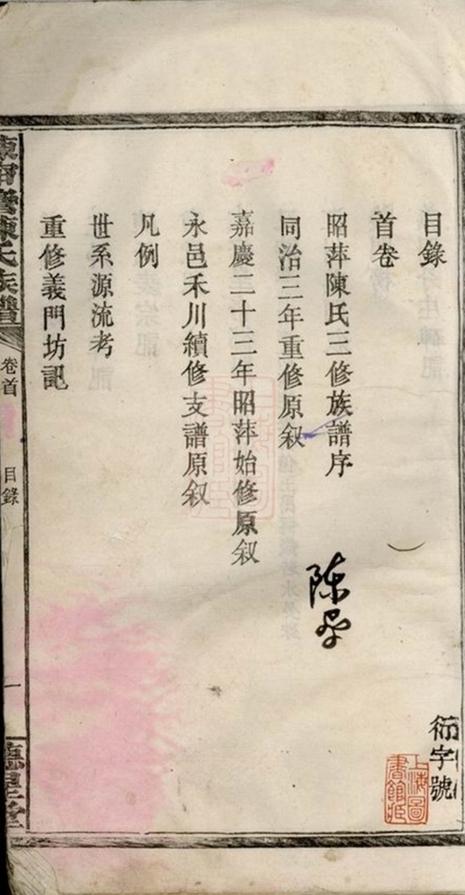 目錄
首卷
昭萍陳氏三修族譜序
同治三年重修原叙
嘉慶二十三年昭萍始修原叙
永邑禾川續修支譜原叙
凡例
世系源流考
重修義門坊記
陳
字號
上海圖
書館藏
陳氏族譜
卷首
目錄
一
堂